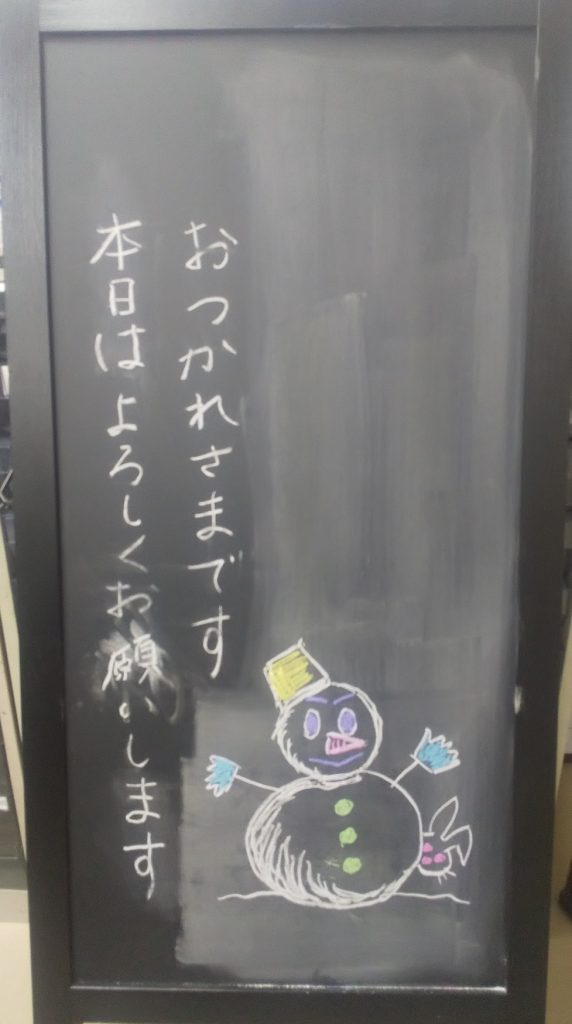 おつかれさまです
本日はよろしくお願いします